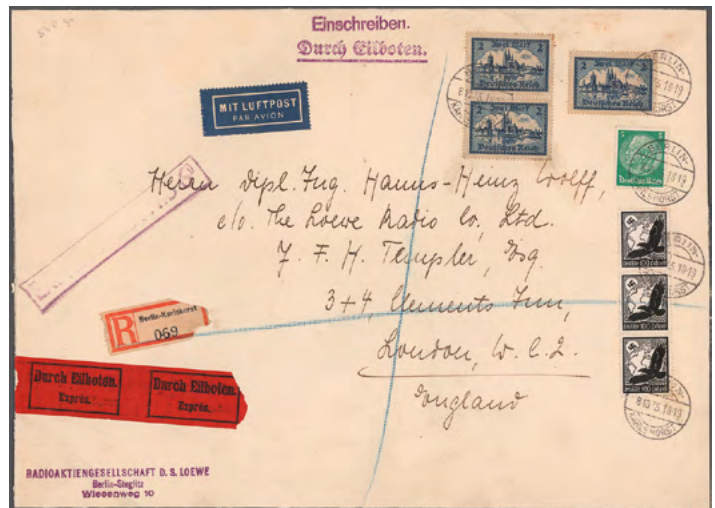 Einschreiben.
Durch Eilboten.
MIT LUFTPOST
PAR AVION
2 2
Deutsches Reich
2 2
Deutsches Reich
2 2
Deutsches Reich
BERLIN-
KARLSHORST
5
Deutsches Reich
BERLIN-
KARLSHORST
Herrn Dipl. Ing. Hanns-Heinz Wolff,
c/o. The Loewe Radio Co, Ltd.
J. F. H. Templer, Esq.
3+4, Clements Inn,
London, W. C. 2.
England
R
Berlin-Karlshorst
069
Durch Eilboten.
Exprès.
Durch Eilboten.
Exprès.
100
100
100
RADIOAKTIENGESELLSCHAFT D. S. LOEWE
Berlin-Steglitz
Wiesenweg 10